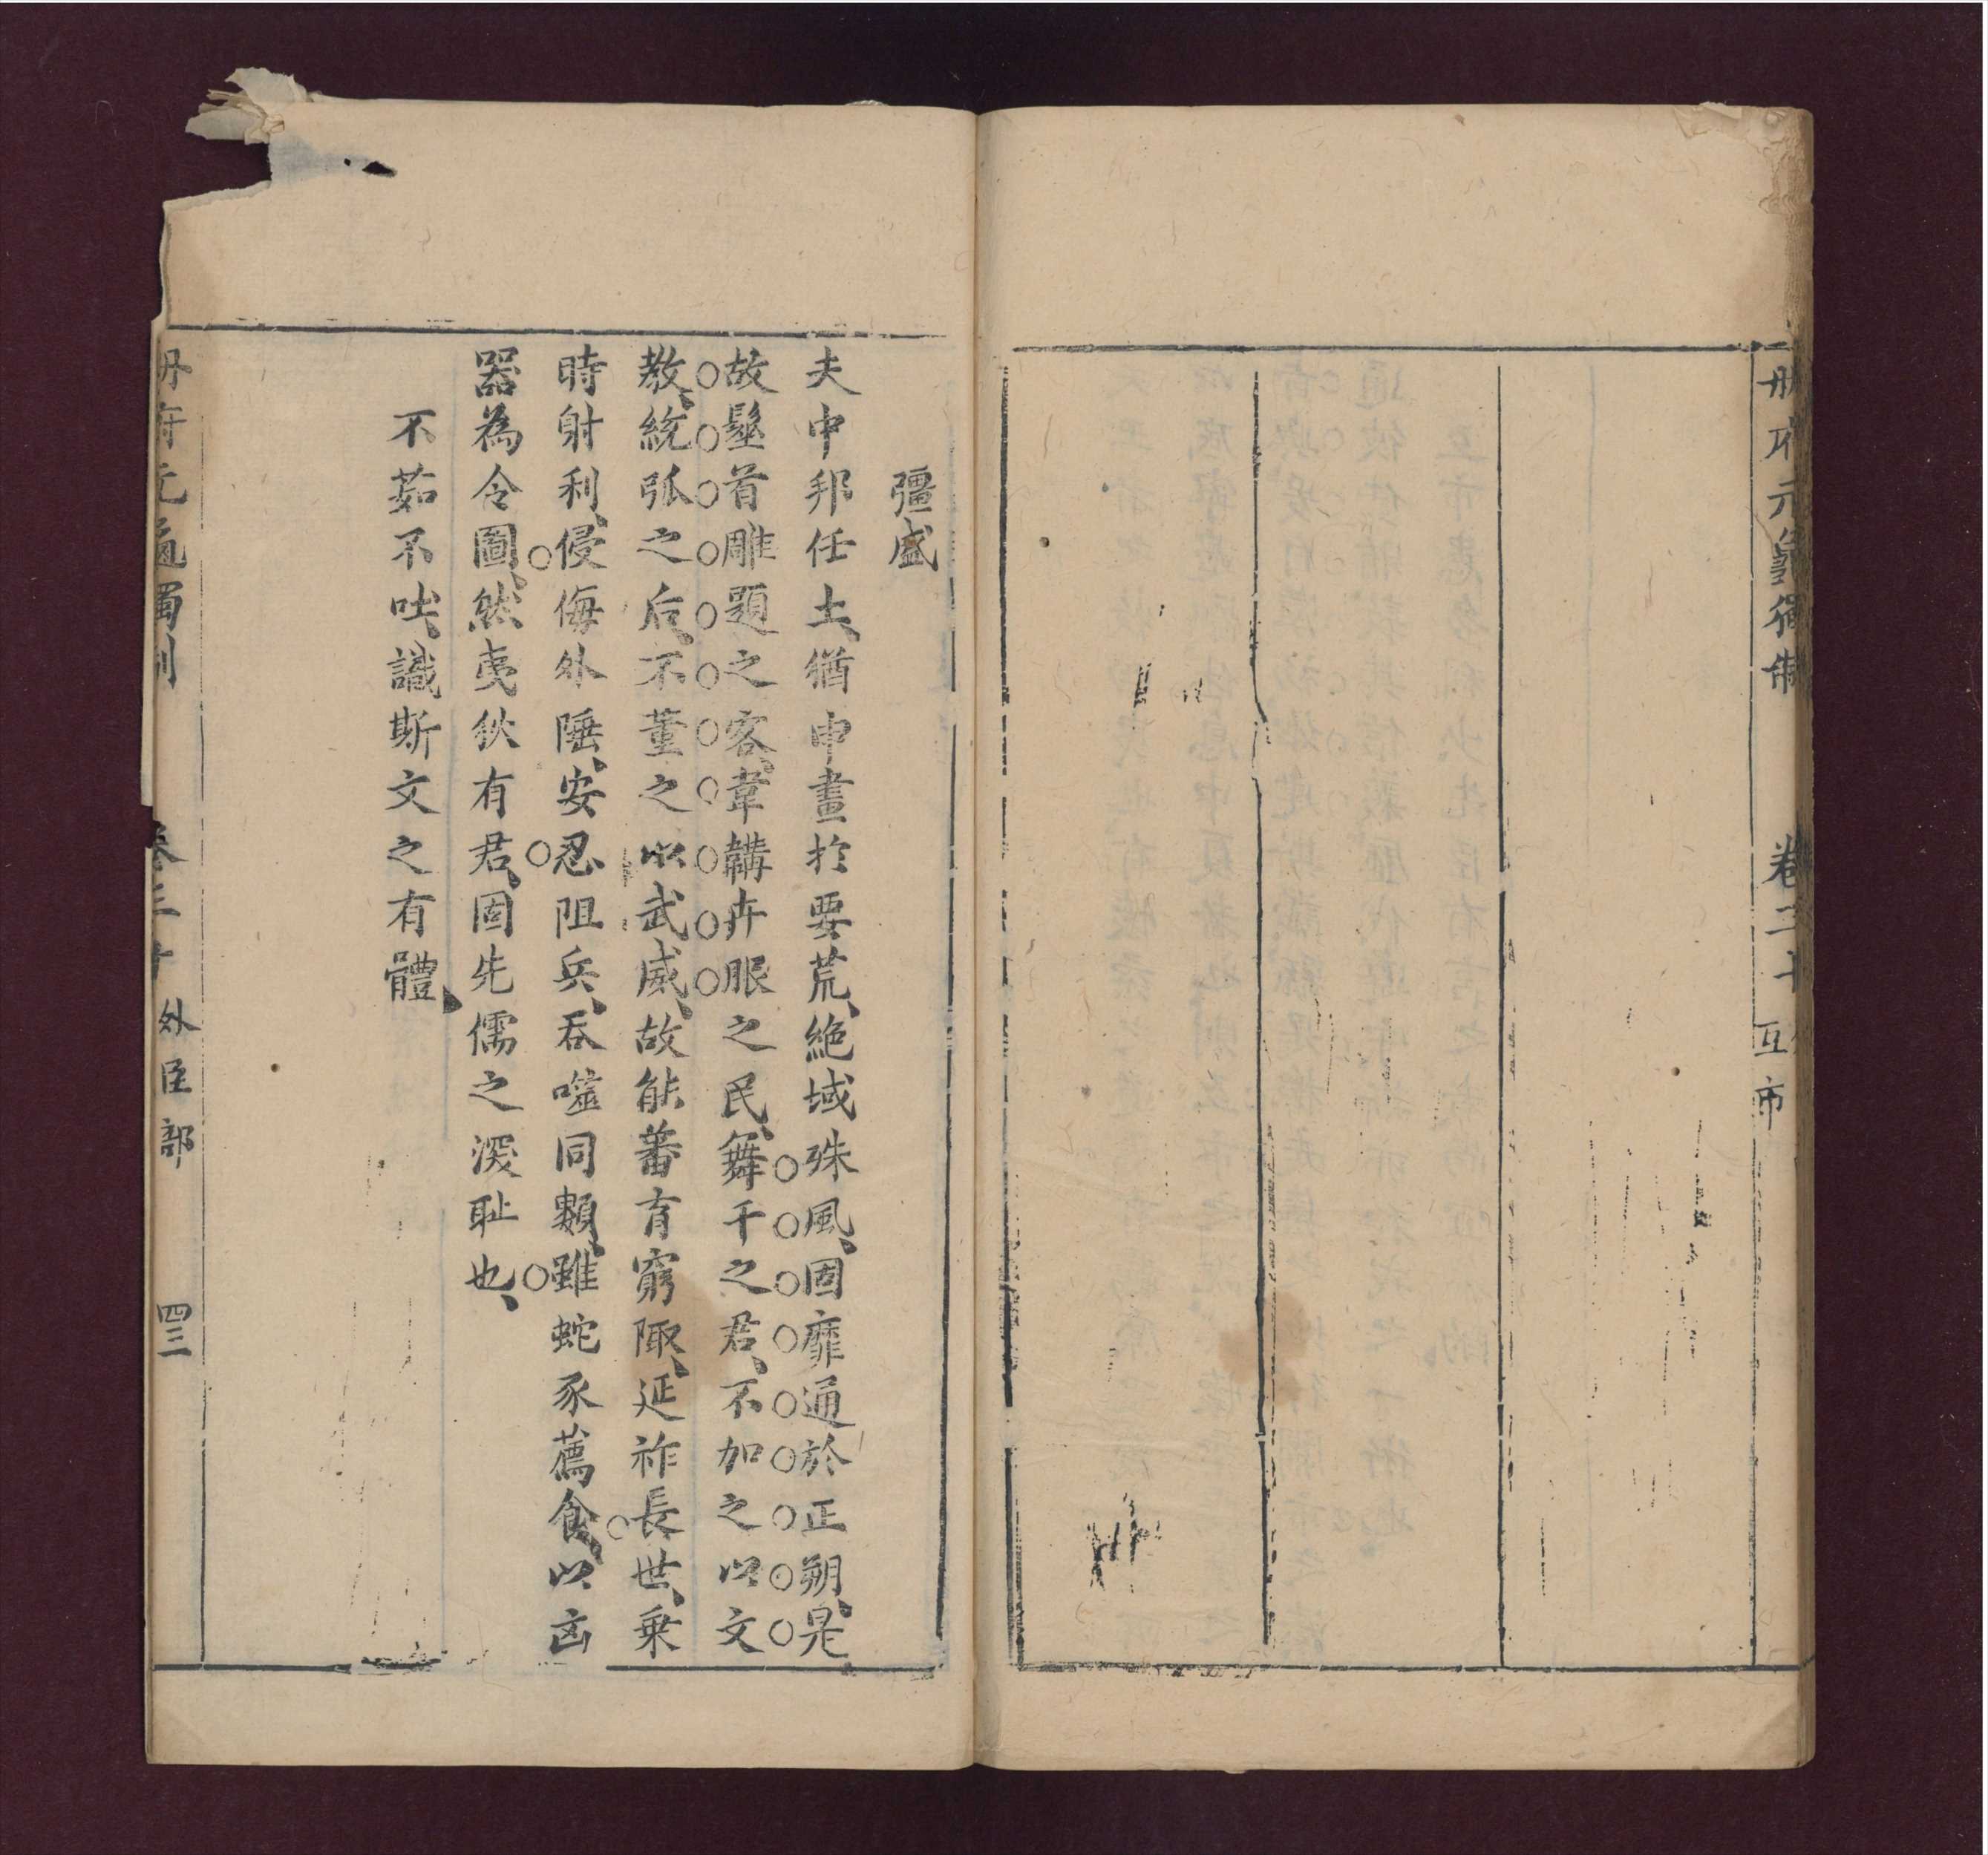 册府元龜獨制 卷三十 互市
彊盛
夫中邦任土、猶申畫於要荒、絶域殊風、固靡通於正朔、是
故髽首雕題之客、韋韝卉服之民、舞干之君、不加之以文
教、統弧之后、不董之以武威、故能蕃育窮陬、延祚長世、乗
時射利、侵侮外陲、安忍阻兵、吞噬同類、雖蛇豕薦食、以凶
器為令圖、然夷狄有君、固先儒之深耻也、
不茹不吐、識斯文之有體、
册府元龜獨制 卷三十 外臣部 四三